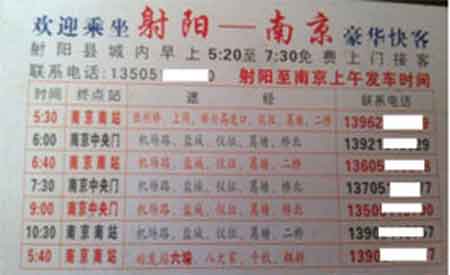 欢迎乘坐 射阳—南京 豪华快客
射阳县城内早上5:20至7:30免费上门接客
联系电话:13505 0 射阳至南京上午发车时间
时间 终点站 途 经 联系电话
5:30 南京南站 上冈、仪征、葛塘、二桥 13962 9
6:00 南京中央门 机场路、盐城、仪征、葛塘、桥北 13921 29
6:40 南京南站 机场路、盐城、仪征、葛塘、二桥 13605
7:30 南京中央门 机场路、盐城、仪征、葛塘、桥北 13705 7
9:00 南京南站 机场路、盐城、仪征、葛塘、二桥 1350
10:30 南京南站 机场路、盐城、仪征、葛塘、二桥 1390 7
5:40 南京南站 六垛、八大家、千秋、 1390